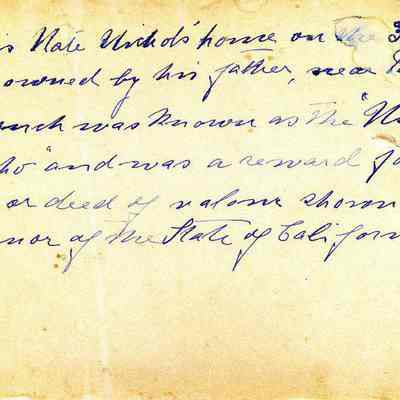 is Nate Nichols' home on the
owned by his father, near
anch was known as the "
ho" and was a reward fo
or deed of valour shown
nor of the State of Californ